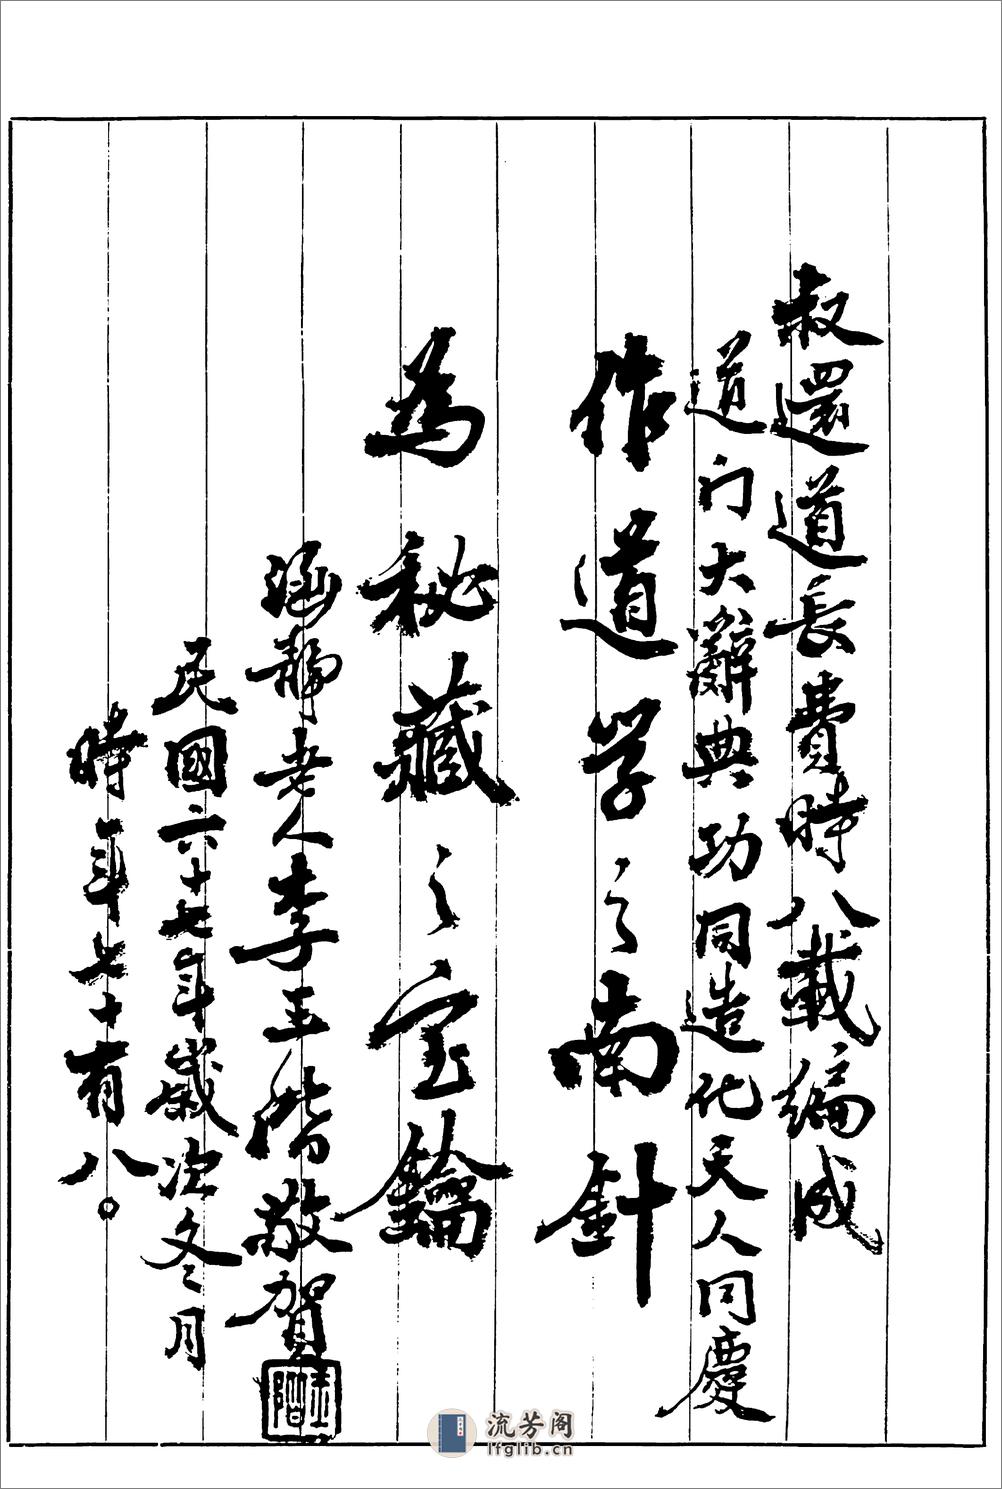 叔還道長費時八載編成
道门大辭典功同造化天人同慶
作道学之南針
為秘藏之宝鑰
涵靜老人李玉階敬賀
民國六十七年歲次冬月
時年七十有八。
玉階
流芳阁
lfglib.cn